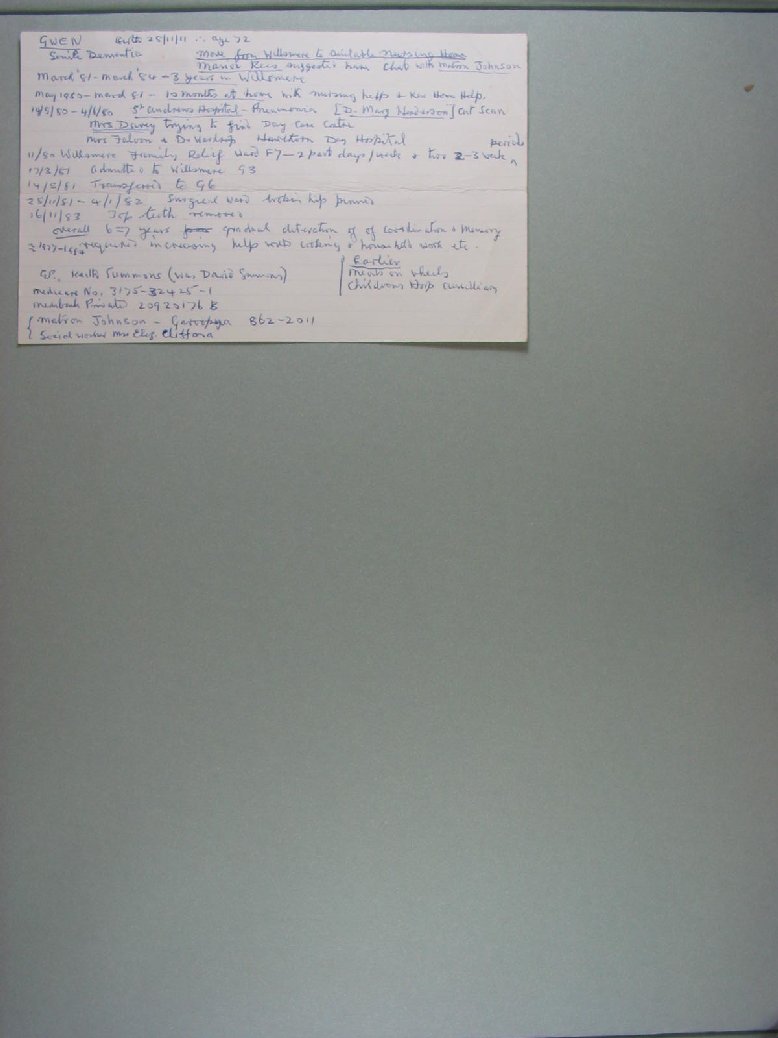 GWEN birth 25/11/11 ∴ age 72
Senile Dementia Move from Willsmere to suitable Nursing Home
Rees suggested have chat with Matron Johnson
March '81 - March '84 - 3 years in Willsmere
May 1980 - March 81 - 10 months at home with nursing help & Kew Home Help.
14/5/80 - 4/6/80 St Andrews Hospital - Pneumonia [Dr. Mary Henderson] Cat Scan
Mrs Davey trying to find Day Care Centre
Mrs Falcon & Dr Hawthorn Day Hospital
11/80 Willsmere Family Relief Ward F7 - 2 part days/week & two 2-3 week periods
17/3/81 admitted to Willsmere G3
14/5/81 Transferred to G6
25/11/81 - 4/1/82 Surgical Ward broken hip pinned
16/11/83 3 of teeth removed
overall 6-7 years gradual of of coordination & memory
1977-1984 required increasing help with cooking & household work etc.
Earlier
Meals on wheels
Childrens Hosp auxilliary
GP. Keith Summons (was David Summons)
medicare No. 3175-32425-1
medibank Private 20920176 B
Matron Johnson - 862-2011
Social worker Mrs Eliz. Clifford